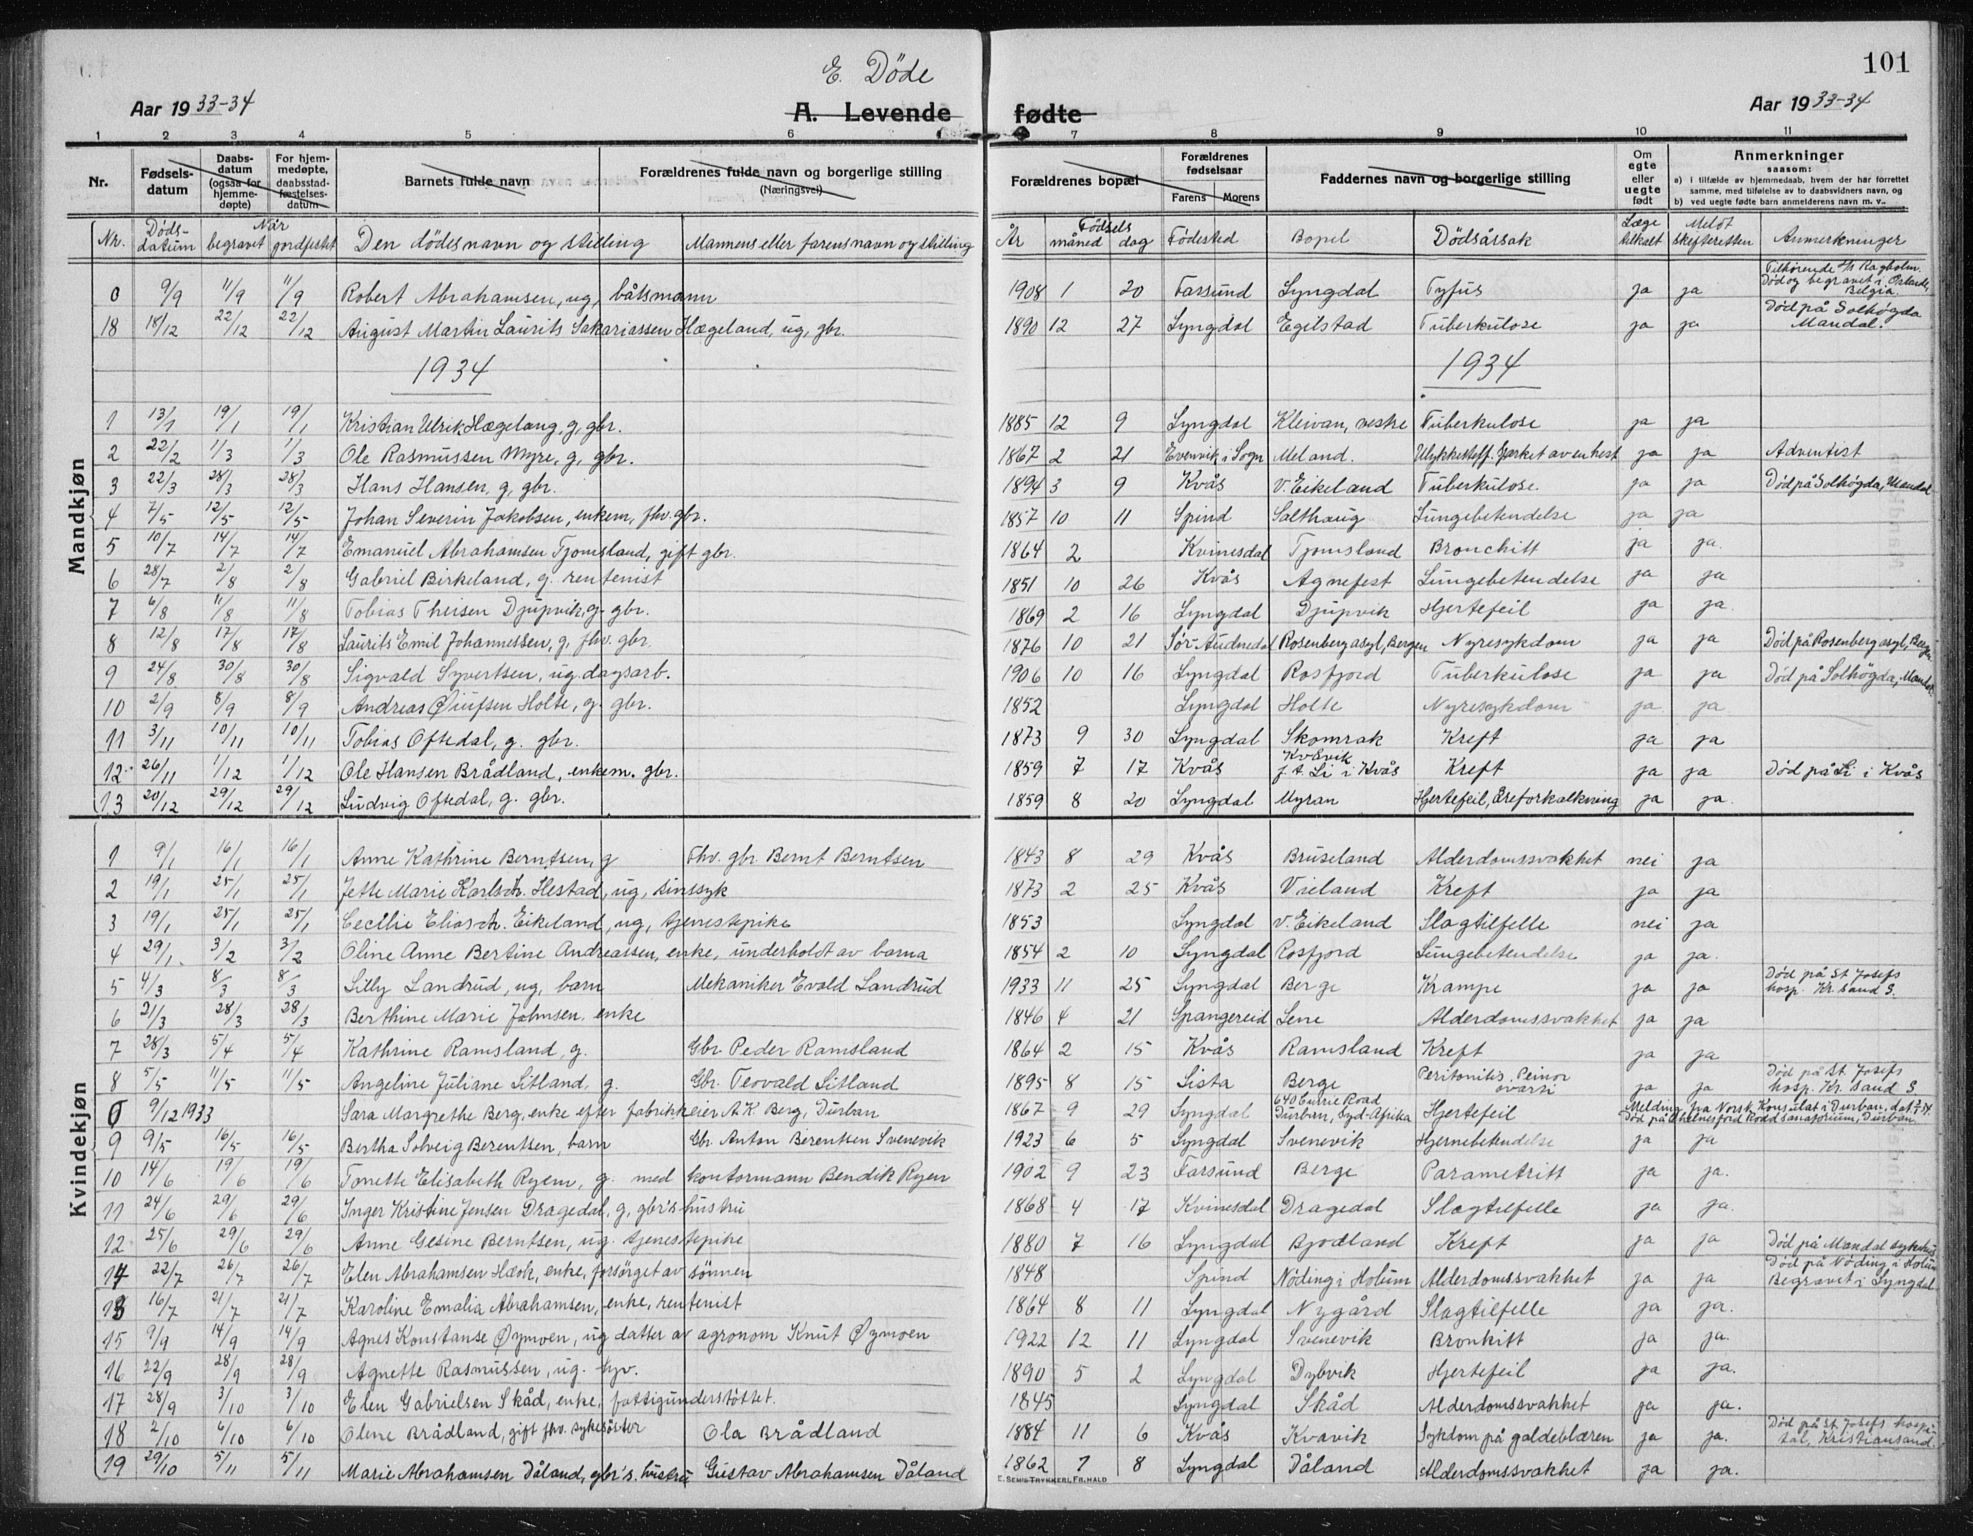 E. Døde
101
Aar 1933-34 A. Levende fødte Aar 1933-34
1 2 3 4 5 6 7 8 9 10 11
Nr. Fødsels-datum Daabs-datum (ogsaa for hjemme-døpte) For hjem-medøpte, daabsstad-fæstelses-datum Barnets fulde navn Forældrenes fulde navn og borgerlige stilling (Næringsvei) Forældrenes bopæl Forældrenes fødselsaar Farens Morens Faddernes navn og borgerlige stilling Om egte eller uegte født Anmerkninger saasom: a) i tilfælde av hjemmedaab, hvem der har forrettet samme, med tilføielse av to daabsvidners navn, og b) ved uegte fødte barn anmelderens navn m. v..
Nr. Døds-datum Når begravet jordfestet Den dødes navn og stilling Mannens eller farens navn og stilling År Fødsels måned dag Fødested Bopel Dødsårsak Læge tilkalt Meldt skifteretten Anmerkninger
Mandkjøn
0 9/9 11/9 11/9 Robert Abrahamsen, ug, båtsmann 1908 1 20 Farsund Lyngdal Tyfus ja ja Tilhørende s/s Ragholm. Død og begravet i Belgia.
18 18/12 22/12 22/12 August Martin Laurits Sakariassen Hægeland, ug, gbr. 1890 12 27 Lyngdal Egilstad Tuberkulose ja ja Død på Solhøgda Mandal.
1934 1934
1 13/1 19/1 19/1 Kristian Ulrik Hægeland, g, gbr. 1885 12 9 Lyngdal Kleivan, vestre Tuberkulose ja ja
2 22/2 1/3 1/3 Ole Rasmussen Myre, g, gbr. 1867 2 21 Evenvik i Sogn Meland. Ulykkestilf. sparket av en hest ja ja Adventist
3 22/3 28/3 28/3 Hans Hansen, g, gbr. 1894 3 9 Kvås V. Eikeland Tuberkulose. ja ja Død på Solhøgda, Mandal
4 7/5 12/5 12/5 Johan Severin Jakobsen, enkem, fhv. gbr. 1857 10 11 Spind Salthaug Lungebetendelse ja ja
5 10/7 14/7 14/7 Emanuel Abrahamsen Tjomsland, gift gbr. 1864 2 Kvinesdal Tjomsland Bronchitt ja ja.
6 28/7 2/8 2/8 Gabriel Birkeland, g. rentenist 1851 10 26 Kvås Agnefest Lungebetendelse ja ja
7 6/8 11/8 11/8 Tobias Theisen Djupvik, g. gbr. 1869 2 16 Lyngdal Djupvik Hjertefeil ja ja.
8 12/8 17/8 17/8 Laurits Emil Johannessen, g, fhv. gbr. 1876 10 21 Sør-Audnedal Rosenberg asyl, Bergen Nyresykdom ja ja Død på Rosenberg asyl, Bergen
9 24/8 30/8 30/8 Sigvald Syvertsen, ug. dagsarb. 1906 10 16 Lyngdal Rosfjord Tuberkulose ja ja Død på Solhøgda, Mandal
10 2/9 8/9 8/9 Andreas Øiufsen Holte, g. gbr. 1852 Lyngdal Holte Nyresykdom ja. ja
11 3/11 10/11 10/11 Tobias Oftedal, g. gbr. 1873 9 30 Lyngdal Skomrak Kreft ja ja
12. 26/11 1/12 1/12 Ole Hansen Brådland, enkem. gbr. 1859 7 17 Kvås Kvåvik f. t. Li i Kvås Kreft ja ja Død på Li i Kvås
13 20/12 29/12 29/12 Ludvig Oftedal, g. gbr. 1859 8 20 Lyngdal Myran Hjertefeil, Åreforkalkning ja ja.
Kvindekjøn
1 9/1 16/1 16/1 Anne Kathrine Berntsen, g Fhv. gbr. Bernt Berntsen 1843 8 29 Kvås Bruseland Alderdomssvakhet nei ja
2 19/1 25/1 25/1 Jette Marie Karlsdt. Hestad, ug, sinssyk 1873 2 25 Kvås Vieland Kreft ja ja
3 19/1 25/1 25/1 Cecilie Eliasdt. Eikeland, ug, tjenestepike 1853 Lyngdal V. Eikeland Slagtilfelle nei ja
4 29/1 3/2 3/2 Oline Anne Bertine Andreassen, enke, underholdt av barna 1854 2 10 Lyngdal Rosfjord Lungebetendelse ja ja.
5 4/3 8/3 8/3 Lilly Landrud, ug, barn Mekaniker Evald Landrud 1933 11 25 Lyngdal Berge Krampe ja ja Død på St Josefs hosp. Kr sand S.
6 21/3 28/3 28/3 Berthine Marie Johnsen, enke 1846 4 21 Spangereid Lene Alderdomssvakhet ja ja
7 28/3 5/4 5/4 Kathrine Ramsland, g. Gbr. Peder Ramsland 1864 2 15 Kvås Ramsland Kreft ja ja
8 5/5 11/5 11/5 Angeline Juliane Litland, g. Gbr. Teovald Litland 1895 8 15 Lista Berge Peritonitis, ovarii ja ja Død på St Josefs hosp. Kr. sand S
0 9/12 1933 Sara Margrethe Berg, enke efter fabrikkeier A K Berg, Durban 1867 9 29 Lyngdal 640 Currie Road Durban, Syd-Afrika Hjertefeil Melding fra Norsk Konsulat i Durban, dat. Død på Chelmsford Road Sanatorium, Durban.
9 9/5 16/5 16/5 Bertha Solveig Berentsen, barn Gbr. Anton Berentsen Svenevik 1923 6 5 Lyngdal Svenevik Hjernebetendelse ja ja
10 14/6 19/6 19/6 Tonette Elisabeth Ryen, g. med kontormann Bendik Ryen 1902 9 23 Farsund Berge Parametritt ja ja.
11 24/6 29/6 29/6 Inger Kristine Jensen Dragedal, g, gbr's hustru 1868 4 17 Kvinesdal Dragedal Slagtilfelle ja ja.
12 25/6 29/6 29/6 Anne Gesine Berntsen, ug. tjenestepike 1880 7 16 Lyngdal Bjodland Kreft ja ja Død på Mandal sykehus
14 22/7 26/7 26/7 Elen Abrahamsen Hæok, enke, forsørget av sønnen 1848 Spind Nøding i Holum Alderdomssvakhet ja ja Død på Nøding i Holum Begravet i Lyngdal.
13 16/7 21/7 21/7 Karoline Emalia Abrahamsen, enke, rentenist 1864 8 11 Lyngdal Nygård Slagtilfelle ja ja.
15 9/9 14/9 14/9 Agnes Konstanse Øymoen, ug datter av agronom Knut Øymoen 1922 12 11 Lyngdal Svenevik Bronkitt ja ja.
16 22/9 28/9 28/9 Agnette Rasmussen, ug. syv. 1890 5 2 Lyngdal Dybvik Hjertefeil ja ja.
17 28/9 3/10 3/10 Elen Gabrielsen Skåd, enke, fattigunderstøttet. 1845 Lyngdal Skåd Alderdomssvakhet ja ja.
18 2/10 6/10 6/10 Olene Brådland, gift fhv. sykesøster Ola Brådland 1884 11 6 Kvås Kvavik Sykdom på galdeblæren ja ja. Død på St. Josefs hospital, Kristiansand
19 29/10 5/11 5/11 Marie Abrahamsen Dåland, gbr's. hustru Gustav Abrahamsen Dåland 1862 7 8 Lyngdal Dåland Alderdomssvakhet ja ja.
E. SEMS TRYKKERI, FR.HALD